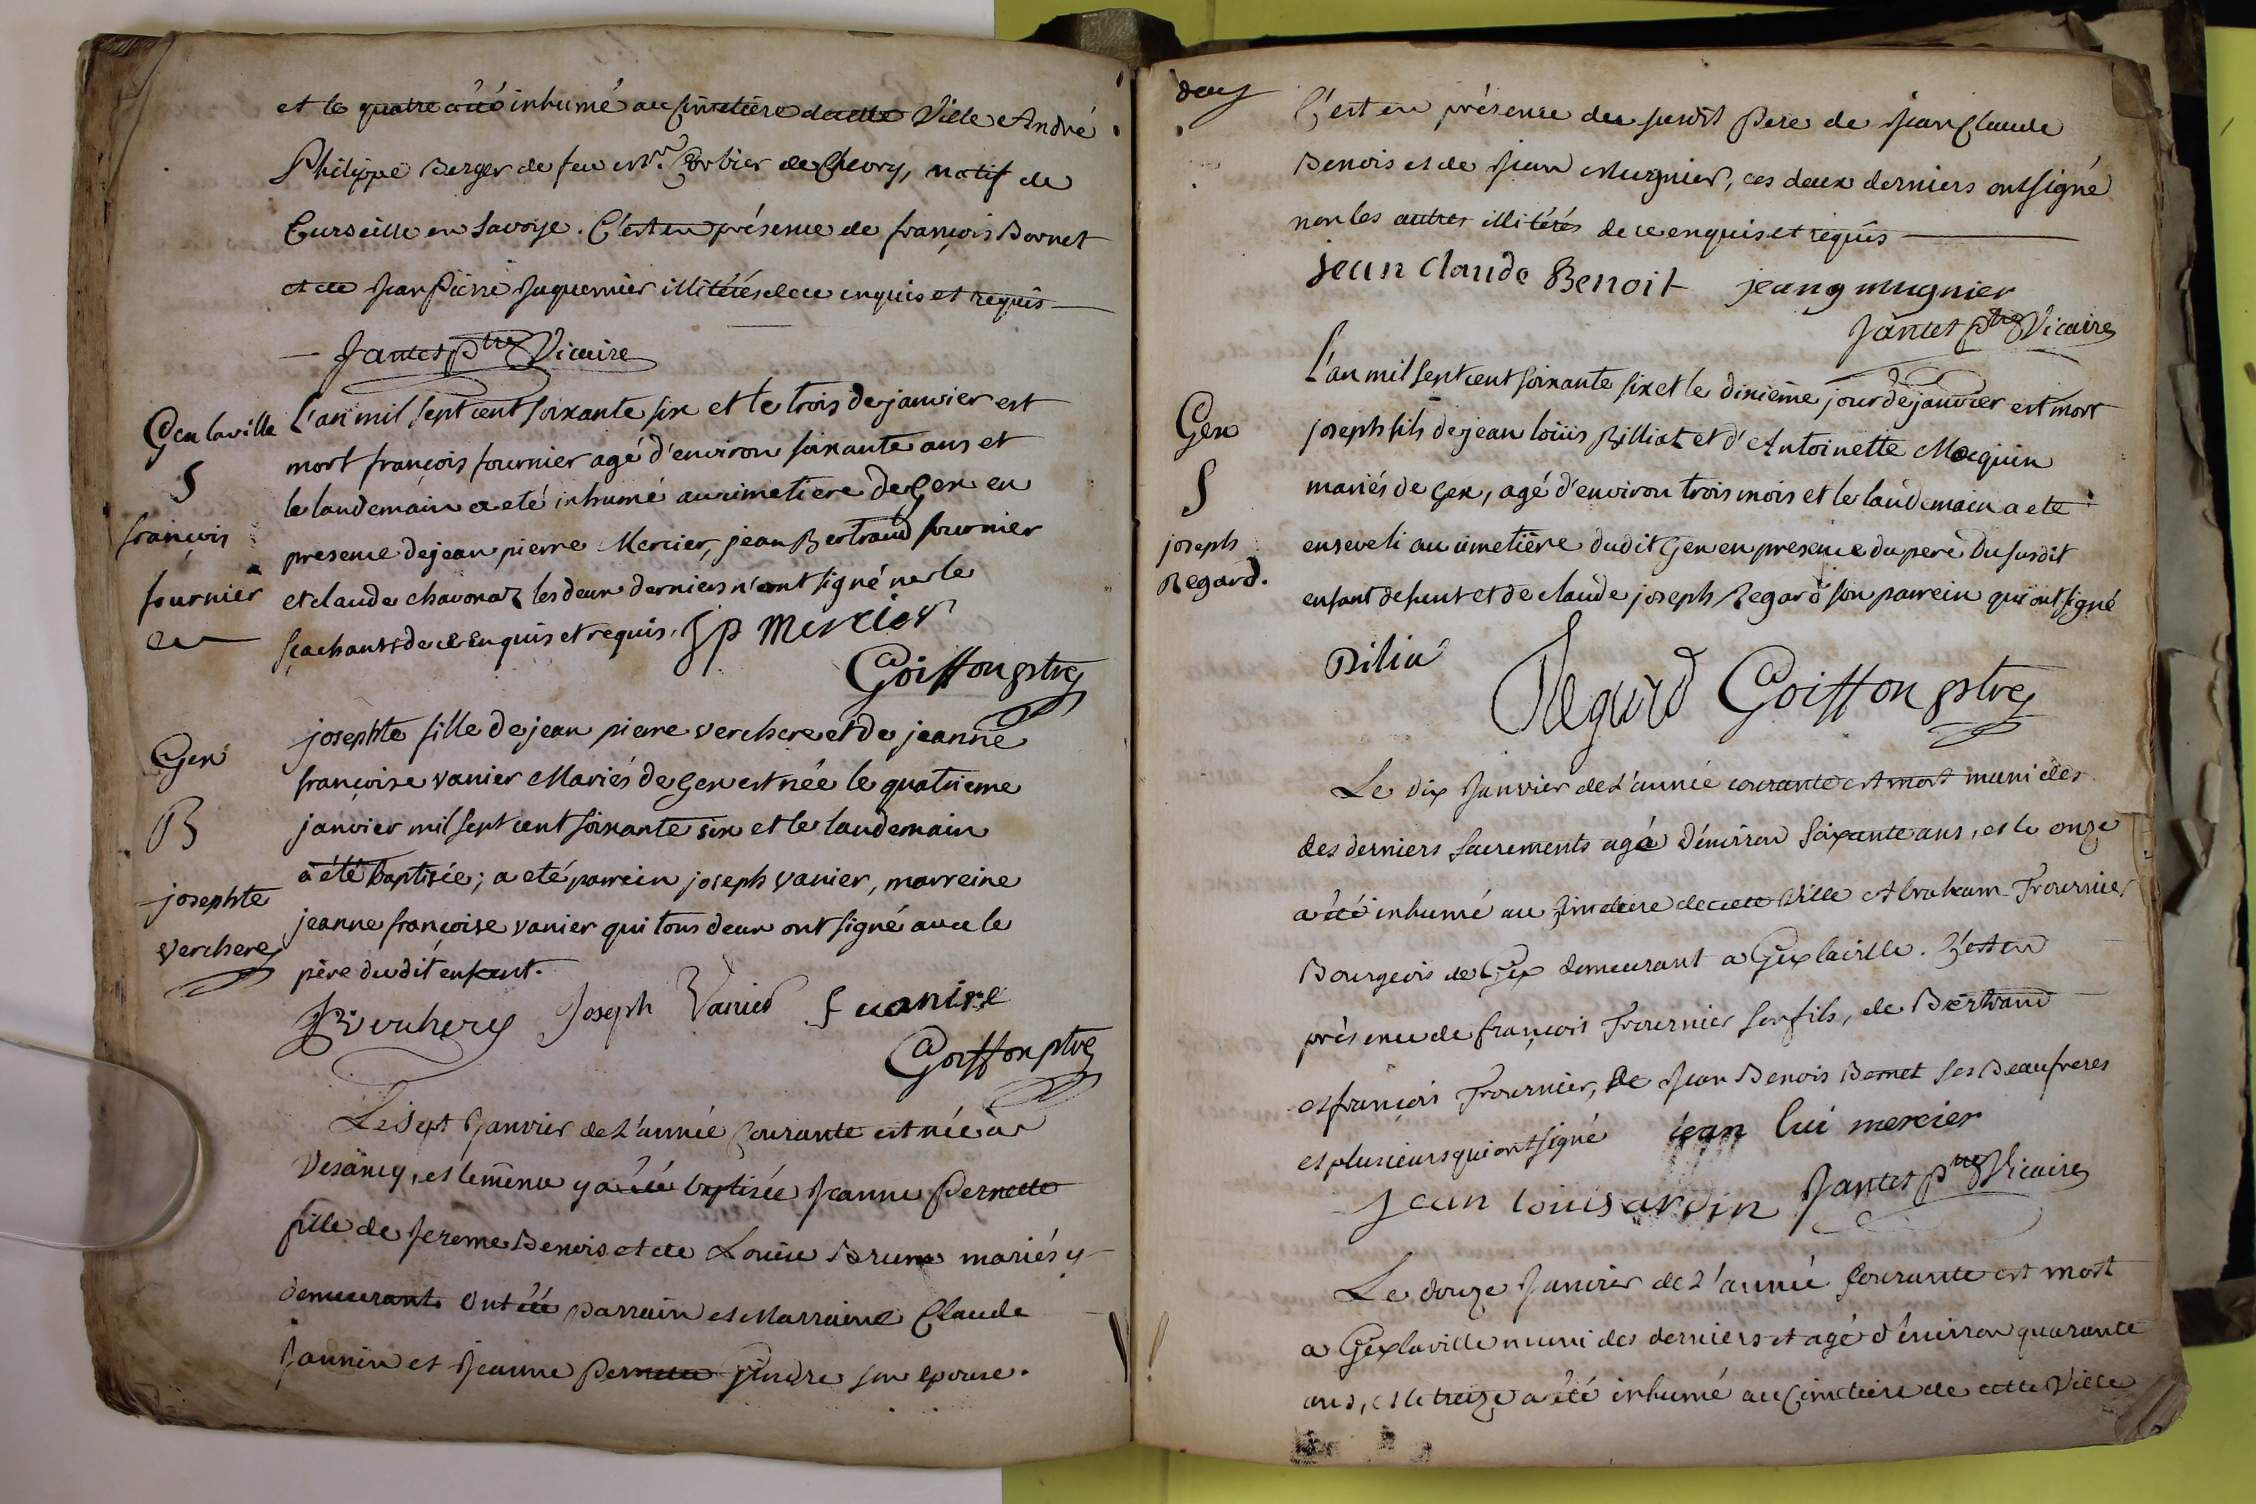 et le quatre a été inhumé au Cimetière de cette Ville André
Philippe Berger de feu Mr. Corbier de Chevry, natif de
Curseille en Savoye. C'est en présence de françois Bornet
et de Jean Pierre Juquernier illitérés de ce enquis et requis
Jantet Ptre Vicaire
Gex la ville
S
françois
fournier
L'an mil sept cent soixante six et le trois de janvier est
mort françois fournier agé d'environ soixante ans et
le landemain a eté inhumé au cimetiere de Gex en
presence de jean pierre Mercier, jean Bertrand fournier
et claude chavonaz les deux derniers n'ont signé ne le
sçachants de ce enquis et requis. J p mercier
Goiffon ptre
Gex
B
josephte
verchere
josephte fille de jean pierre verchere et de jeanne
françoise vanier Mariés de Gex est née le quatrieme
janvier mil sept cent soixante six et le landemain
a été baptisée; a eté parrein joseph vanier, marreine
jeanne françoise vanier qui tous deux ont signé avec le
père dudit enfant.
Joseph Vanier f vanire
Goiffon ptre
Le Sept Janvier de L'année Courante est née à
Vesancy, et le même y a été baptisée Jeanne Pernette
fille de Jerome Benois et de Louise Brune mariés y
demeurants. Ont été parrain et Marraine Claude
Jannin et Jeanne Pernette son epouse.
deux
C'est en présence du susdit Pere de Jean Claude
Benois et de Jean Mugnier, ces deux derniers ont signé
non les autres illitérés de ce enquis et requis
jean claude Benoit jean g mugnier
Jantet Ptre Vicaire
Gex
S
joseph
Regard.
L'an mil sept cent soixante six et le dixième jour de janvier est mort
joseph fils de jean loüis Billiat et d'Antoinette Mocquin
mariés de Gex, agé d'environ trois mois et le landemain a eté
enseveli au cimetière dudit Gex en presence du pere du susdit
enfant defunt et de claude joseph Regard son parrein qui ont signé
Bilia Regard Goiffon ptre
Le dix Janvier de L'année courante est mort muni des
des derniers Sacrements agé d'environ Soixante ans, et le onze
a été inhumé au Cimetiere de cette Ville Abraham Fournier
Bourgeois de Gex demeurant a Gex la ville. C'est en
présence de françois Fournier son fils, de Bertrand
et françois Fournier, de Jean Benois Bornet ses Beaufreres
et plusieurs qui ont signé jean lui mercier
Jean louis ardin Jantet Ptre Vicaire
Le douze Janvier de L'année Courante est mort
a Gex la ville muni des derniers et agé d'environ quarante
ans, et le treize a été inhumé au Cimetiere de cette Ville